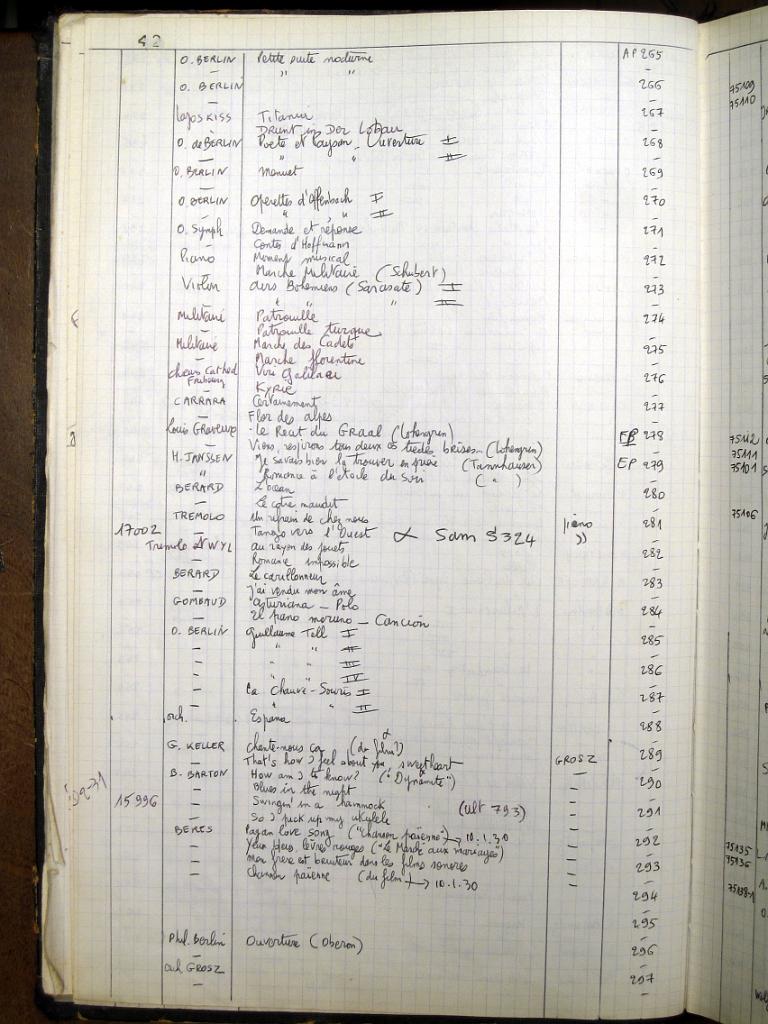 42
O. BERLIN Petite suite nocturne AP 265
— " " —
O. BERLIN 266
— —
Lajos KISS Titania 267
— DRUNT in Der Lobau —
O. de BERLIN Poete et Paysan - Ouverture I 268
— " " II —
O. BERLIN Menuet 269
— —
O. BERLIN Operettes d'Offenbach I 270
— " " II —
O. Symph Demande et réponse 271
— Contes d'Hoffmann —
Piano Moment musical 272
— Marche Militaire (Schubert) —
Violon Airs Bohemiens (Sarasate) I 273
— " " " II —
Militaire Patrouille 274
— Patrouille turque —
Militaire Marche des Cadets 275
— Marche florentine —
Chœurs Cathed Viri Galilaei 276
Fribourg KYRIE —
CARRARA Certainement 277
— Flor des alpes —
Louis Graveure - Le Récit du GRAAL (Lohengrin) EP 278
— Viens, respirons tous deux ces tiedes brises.. (Lohengrin) —
H. JANSSEN Je savais bien la trouver en prière (Tannhauser) EP 279
" Romance à l'étoile du soir ( " ) —
BERARD L'ocean 280
— Le cotre maudit —
TREMOLO Un refrain de chez nous piano 281
17002 — Tango vers l'Ouest α Sam S324 " —
Tremolo WYL au rayon des jouets 282
— Romance impossible —
BERARD Le carillonneur 283
— J'ai vendu mon âme —
GOMBAUD Asturiana - Polo 284
— El pano moruno - Cancion —
O. BERLIN Guillaume Tell I 285
— " " II —
— " " III 286
— " " IV —
— La Chauve-Souris I 287
— " " II —
orch. Espana 288
—
G. KELLER chante-nous ça (du film?) 289
— That's how I feel about you, sweetheart GROSZ —
B. BARTON How am I to know? ("Dynamite") — 290
— Blues in the night — —
15996 — Swingin' in a hammock (ult 793) — 291
— So I pick up my ukulele — —
BERES Pagan love song ("Chanson païenne") → 10.1.30 — 292
— Yeux doux, lèvres rouges ("Le Marché aux mariages") — —
— Mon frère est bruiteur dans les films sonores — 293
— Chanson païenne (du film) → 10.1.30 — —
294
—
295
—
Phil. Berlin Ouverture (Oberon) 296
— —
orch. GROSZ 297
— —
75109
75110
75112
75111
75101
75106
75135
75136